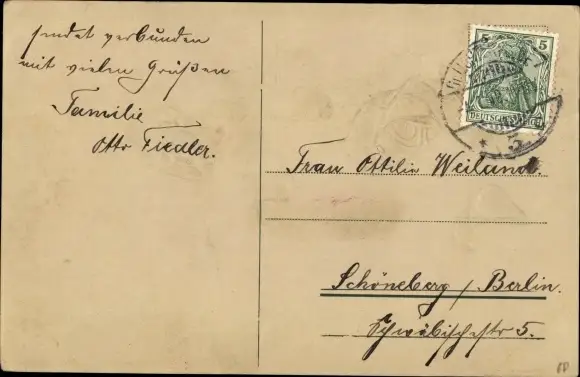 sendet verbunden
mit vielen Grüßen
Familie
Otto Fiedler.
5 5
DEUTSCHES REICH
Frau Ottilie Weiland.
Schöneberg / Berlin.
Schwäbischestr 5.